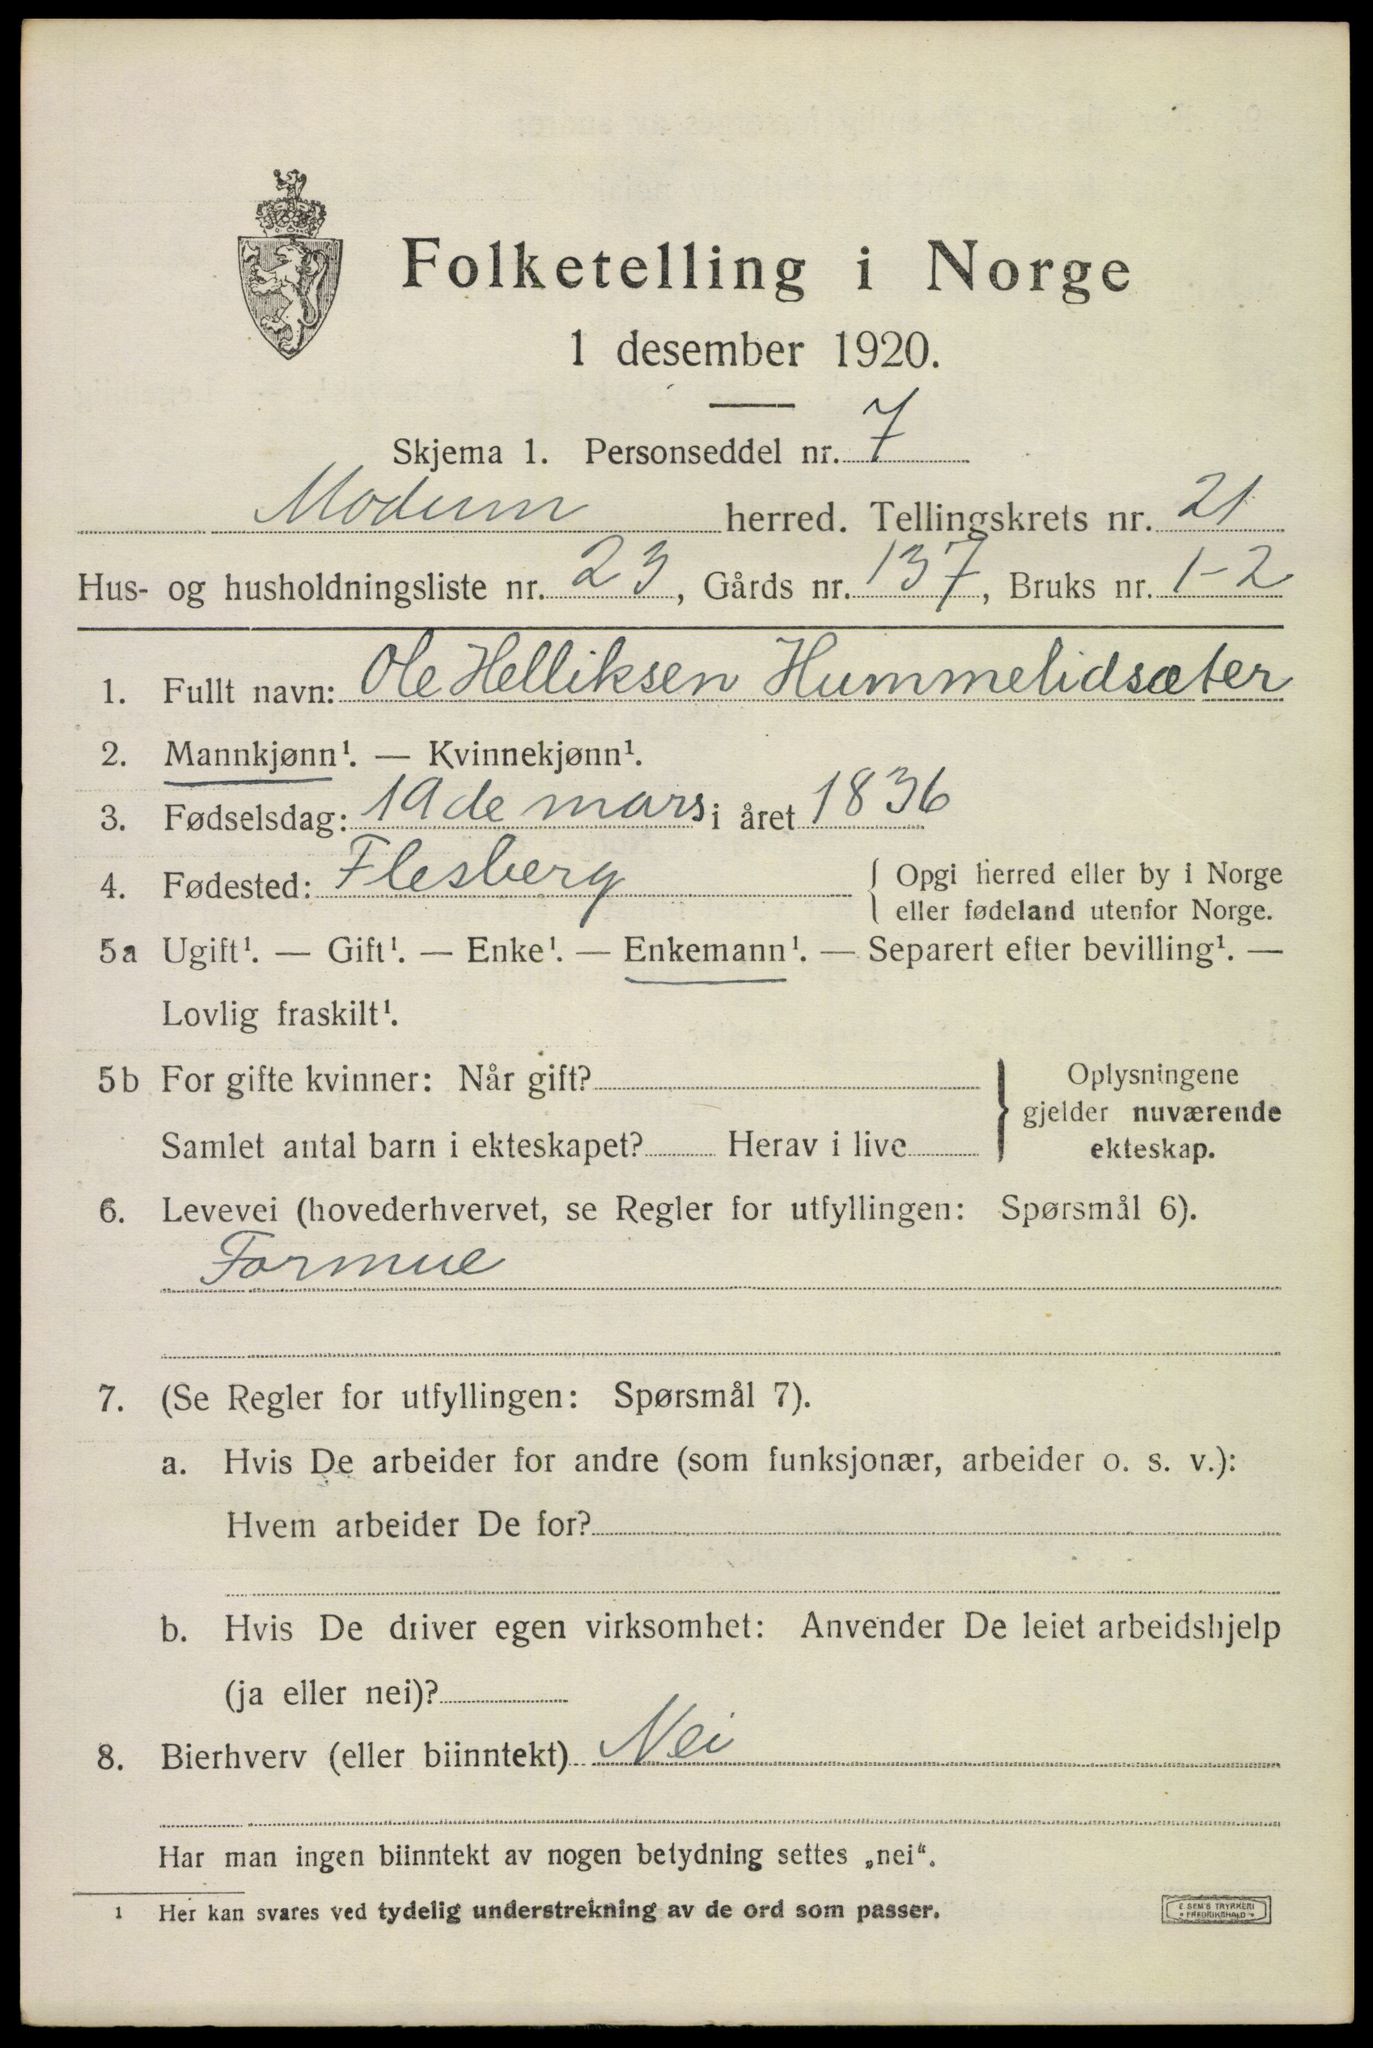 Folketelling i Norge
1 desember 1920.
Skjema 1. Personseddel nr. 7
Modum herred. Tellingskrets nr. 21
Hus- og husholdningsliste nr. 23, Gårds nr. 137, Bruks nr. 1-2
1. Fullt navn: Ole Helliksen Hummelidsæter
2. Mannkjønn¹. — Kvinnekjønn¹.
3. Fødselsdag: 19de mars i året 1836
4. Fødested: Flesberg { Opgi herred eller by i Norge
eller fødeland utenfor Norge.
5a Ugift¹. — Gift¹. — Enke¹. — Enkemann¹. — Separert efter bevilling¹. —
Lovlig fraskilt¹.
5b For gifte kvinner: Når gift? } Oplysningene
gjelder nuværende
Samlet antal barn i ekteskapet? Herav i live ekteskap.
6. Levevei (hovederhvervet, se Regler for utfyllingen: Spørsmål 6).
Formue
7. (Se Regler for utfyllingen: Spørsmål 7).
a. Hvis De arbeider for andre (som funksjonær, arbeider o. s. v.):
Hvem arbeider De for?
b. Hvis De driver egen virksomhet: Anvender De leiet arbeidshjelp
(ja eller nei)?
8. Bierhverv (eller biinntekt) Nei
Har man ingen biinntekt av nogen betydning settes „nei“.
1 Her kan svares ved tydelig understrekning av de ord som passer.
E. SEM'S TRYKKERI
FREDRIKSHALD